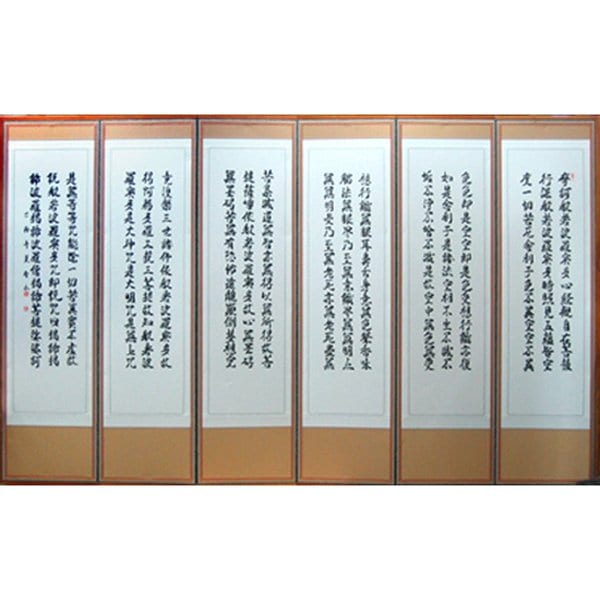 摩訶般若波羅蜜多心經觀自在菩薩
行深般若波羅蜜多時照見五蘊皆空
度一切苦厄舍利子色不異空空不異
色色即是空空即是色受想行識亦復
如是舍利子是諸法空相不生不滅不
垢不淨不增不減是故空中無色無受
想行識無眼耳鼻舌身意無色聲香味
觸法無眼界乃至無意識界無無明亦
無無明盡乃至無老死亦無老死盡無
苦集滅道無智亦無得以無所得故菩
提薩埵依般若波羅蜜多故心無罣碍
無罣碍故無有恐怖遠離顛倒夢想究
竟涅槃三世諸佛依般若波羅蜜多故
得阿耨多羅三藐三菩提故知般若波
羅蜜多是大神呪是大明呪是無上呪
是無等等呪能除一切苦真實不虛故
說般若波羅蜜多呪即說呪曰揭諦揭
諦波羅揭諦波羅僧揭諦菩提娑婆訶